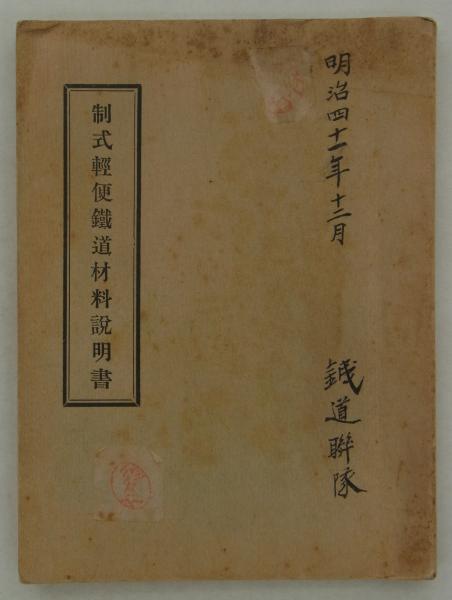 明治四十一年十二月
鐵道聯隊
制式輕便鐵道材料說明書